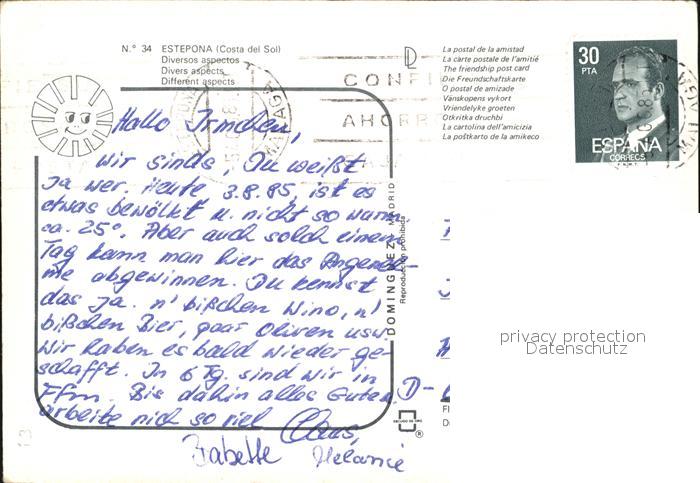 N.º 34 ESTEPONA (Costa del Sol)
Diversos aspectos
Divers aspects
Different aspects
La postal de la amistad
La carte postale de l'amitié
The friendship post card
Die Freundschaftskarte
O postal de amizade
Vänskopens vykort
Vriendelyke groeten
Otkritka druchbi
La cartolina dell'amicizia
La poŝtkarto de la amikeco
30
PTA
ESPAÑA
CORREOS
F.N.M.T.
CONFI
AHORR
Hallo Irmchen,
wir sinds, Du weißt
ja wer. Heute, 3.8.85, ist es
etwas bewölkt u. nicht so warm,
ca. 25°. Aber auch solch einem
Tag kann man hier das Angeneh-
me abgewinnen. Du kennst
das ja. n' bißchen Wino, n'
bißchen Bier, paar Oliven usw.
Wir haben es bald wieder ge-
schafft. In 6 Tg. sind wir in
Ffm. Bis dahin alles Gute,
arbeite nich so viel
Claus,
Babette Melanie
DOMINGUEZ MADRID
Reproducción prohibida
D-
ESCUDO DE ORO
®
privacy protection
Datenschutz
13